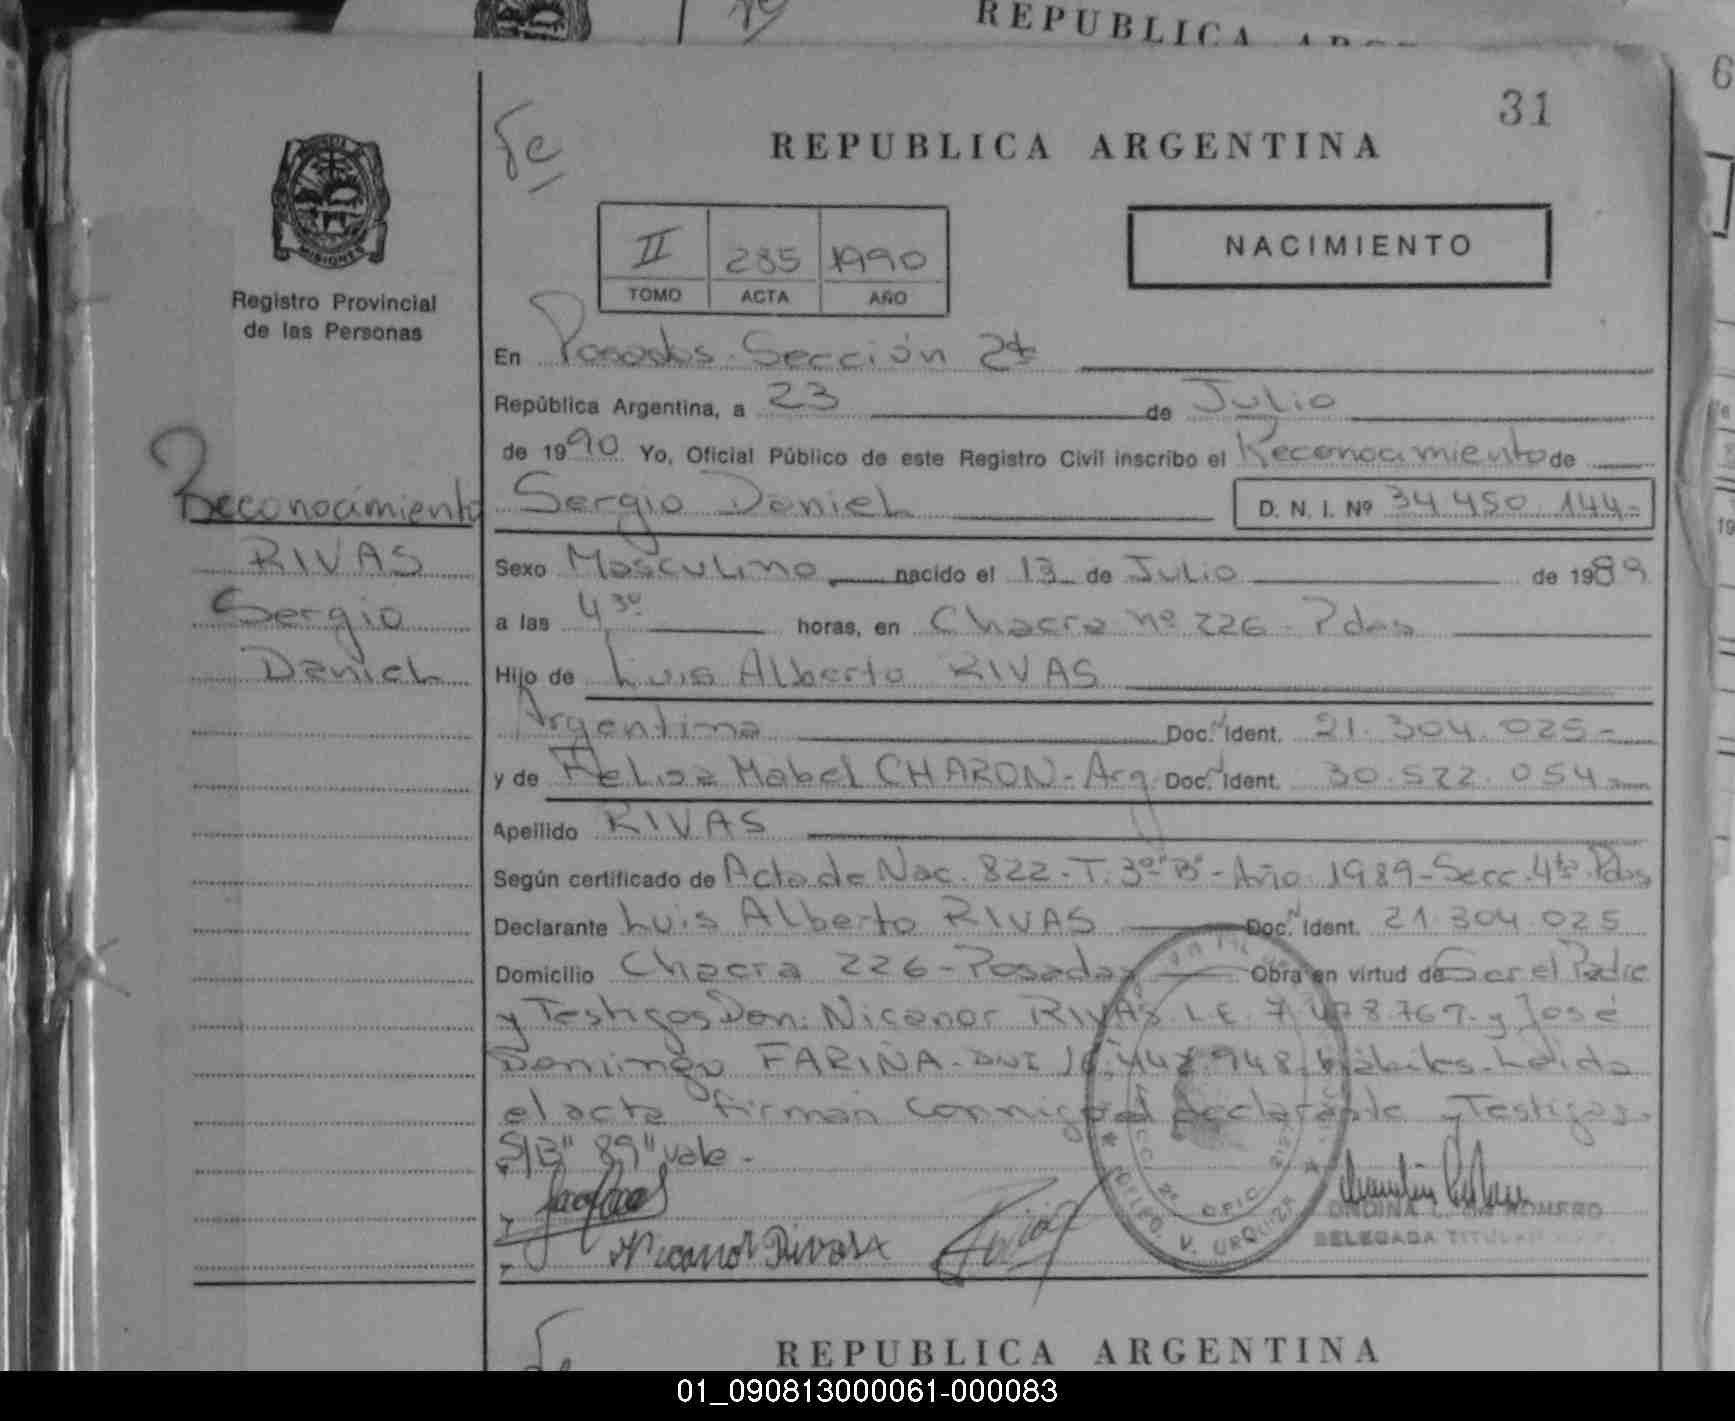 REPUBLICA
31
REPUBLICA ARGENTINA
MISIONES
Registro Provincial
de las Personas
II 285 1990
TOMO ACTA AÑO
NACIMIENTO
En Posadas Sección 2da
República Argentina, a 23 de Julio
de 1990 Yo, Oficial Público de este Registro Civil inscribo el Reconocimiento de
Sergio Daniel D. N. I. Nº 34.450.144-
Reconocimiento
RIVAS
Sergio
Daniel
Sexo Masculino nacido el 13 de Julio de 1989
a las 4 30 horas, en Chacra nº 226 - Pdas
Hijo de Luis Alberto RIVAS
Argentino Doc. Ident. 21.304.025-
y de Felisa Mabel CHARON - Arg. Doc. Ident. 30.522.054-
Apellido RIVAS
Según certificado de Acta de Nac. 822 - T. 3º "B" - Año 1989 - Secc. 4ta Pdas
Declarante Luis Alberto RIVAS Doc. Ident. 21.304.025
Domicilio Chacra 226 - Posadas Obra en virtud de Ser el Padre
y Testigos Don: Nicanor RIVAS L.E. 7. 8.767. y José
Domingo FARIÑA - DNI 948 hábiles - Leída
el acta firman conmigo el declarante y Testigos.
S/B "89" vale.
Nicanor Rivas
DELEG. V. URQUIZA
OFIC.
ONDINA L. DE ROMERO
DELEGADA TITULAR
REPUBLICA ARGENTINA
01_090813000061-000083